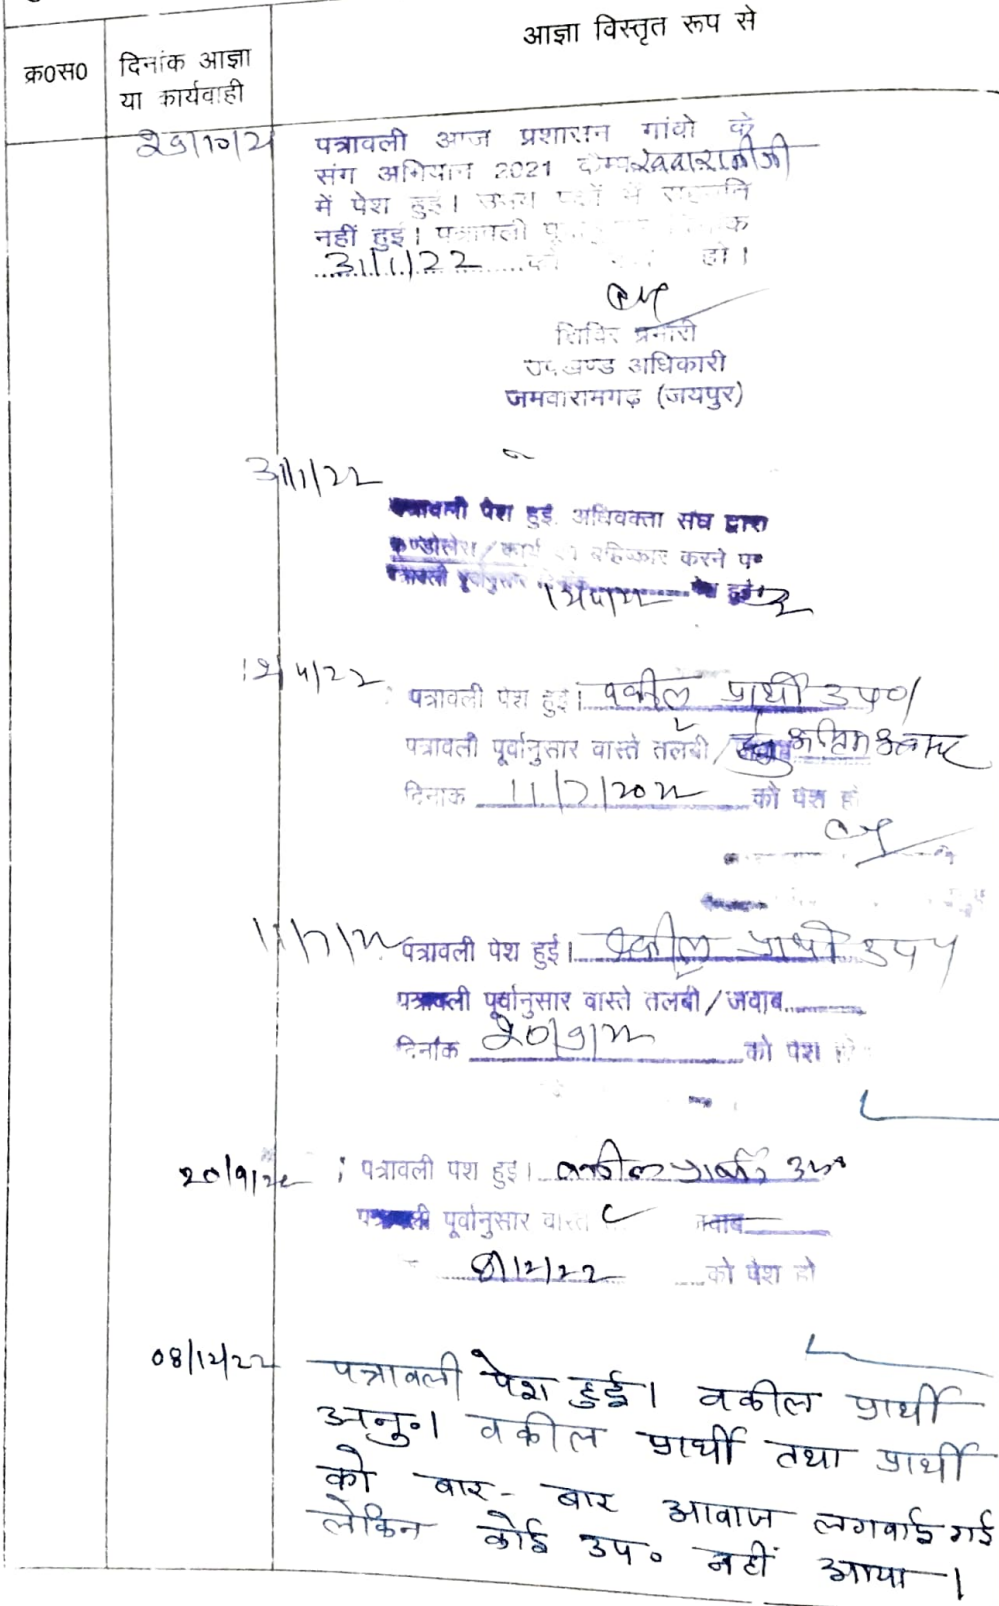 आज्ञा विस्तृत रूप से
क्र०स०
दिनांक आज्ञा
या कार्यवाही
पत्रावली आज प्रशासन गांवो के
संग अभियान 2021
में पेश हुई। उभय पक्षों में सहमति
नहीं हुई। पत्रावली
31/1/22 को हो।
शिविर प्रभारी
उपखण्ड अधिकारी
जमवारामगढ़ (जयपुर)
31/1/22
पत्रावली पेश हुई. अधिवक्ता संघ द्वारा
कार्य बहिष्कार करने
पत्रावली पूर्वानुसार
12/4/22
पत्रावली पेश हुई। वकील प्रार्थी उप०
पत्रावली पूर्वानुसार वास्ते तलबी/
दिनांक 11/7/2022 को पेश हो
11/7/22
पत्रावली पेश हुई। वकील प्रार्थी उप०
पत्रावली पूर्वानुसार वास्ते तलबी/जवाब
दिनांक 20/9/22 को पेश हो
20/9/22
पत्रावली पेश हुई। वकील प्रार्थी उप०
पत्रावली पूर्वानुसार वास्ते जवाब
8/12/22 को पेश हो
08/12/22
पत्रावली पेश हुई। वकील प्रार्थी
अनु०। वकील प्रार्थी तथा प्रार्थी
को बार-बार आवाज लगवाई गई
लेकिन कोई उप० नहीं आया।